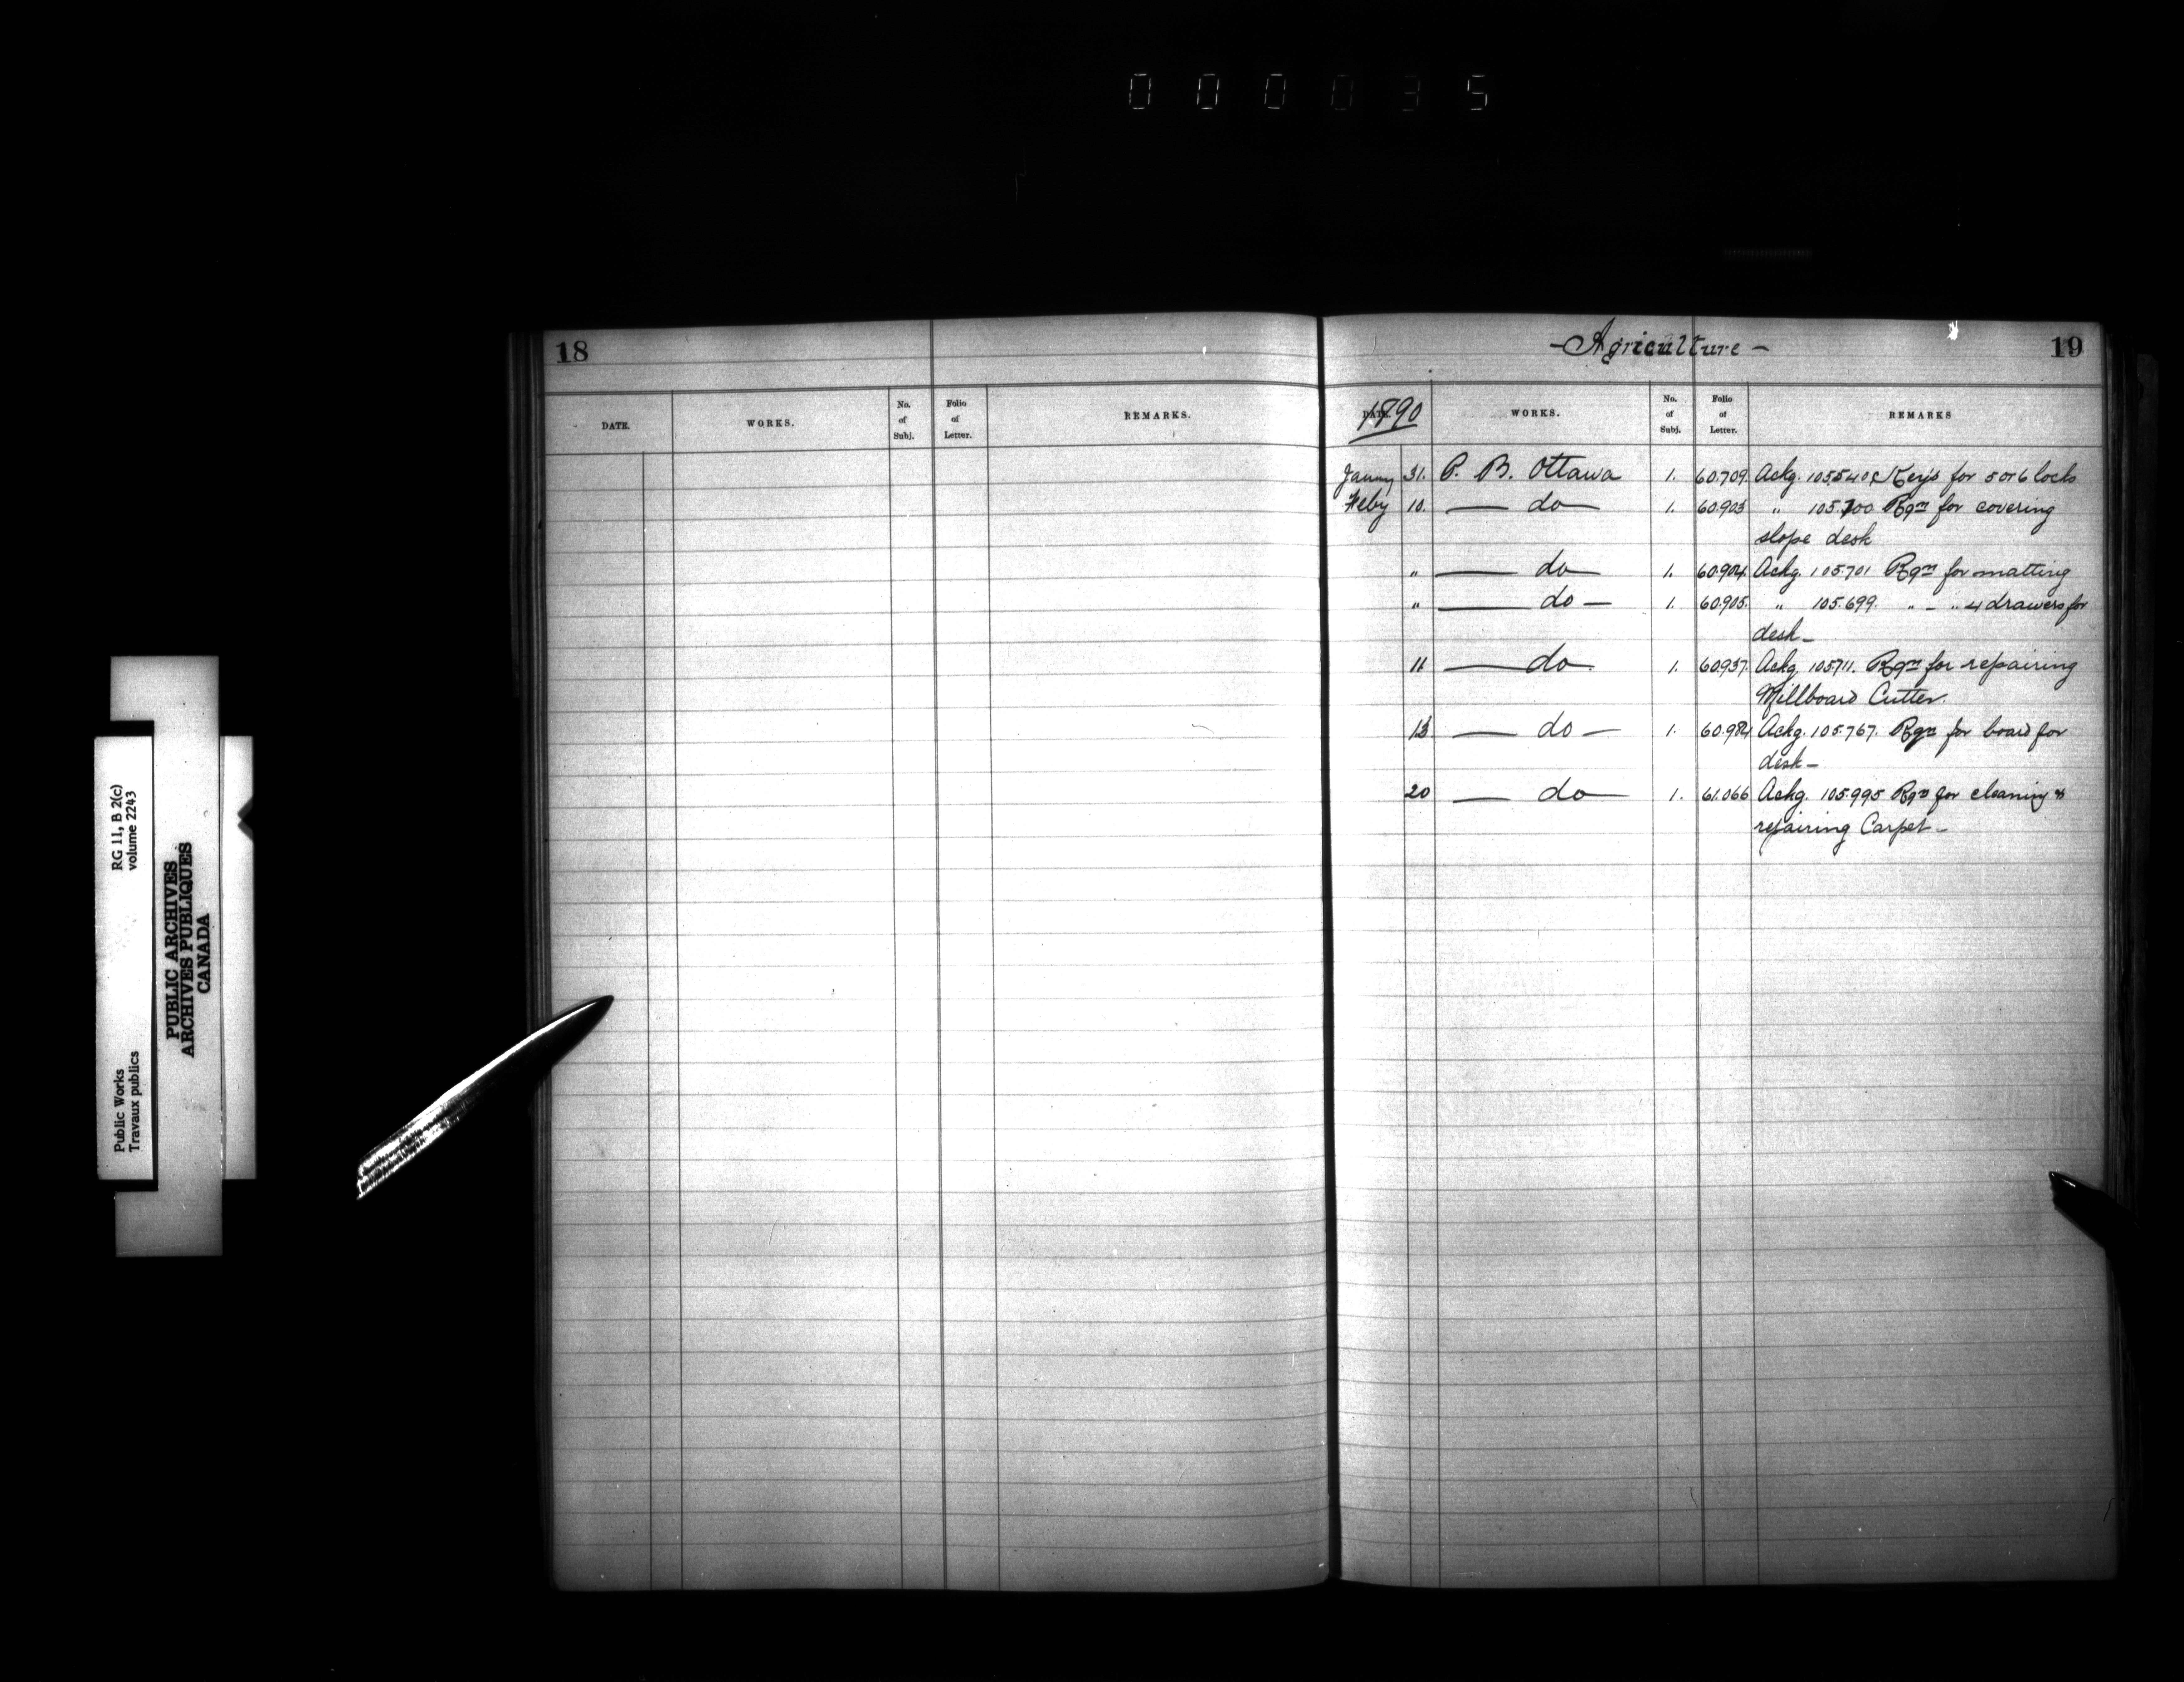 0 0 0 0 3 5
18
DATE. WORKS. No. of Subj. Folio of Letter. REMARKS.
- Agriculture - 19
DATE 1890 WORKS. No. of Subj. Folio of Letter. REMARKS
Janny 31. P. B. Ottawa 1. 60.709. Ackg. 105540 Keys for 5 or 6 locks
Feby 10. do 1. 60903 " 105.700 Rqn for covering
slope desk
" do 1. 60.904. Ackg. 105.701 Rqn for matting
" do 1. 60.905. " 105.699. " - " 4 drawers for
desk
11 do 1. 60.937. Ackg. 105711. Rqn for repairing
Millboard Cutter.
13 do 1. 60.984 Ackg. 105.767. Rqn for board for
desk
20 do 1. 61.066 Ackg. 105995 Rqn for cleaning &
repairing Carpet
RG 11, B 2(c)
volume 2243
Public Works
Travaux publics
PUBLIC ARCHIVES
ARCHIVES PUBLIQUES
CANADA